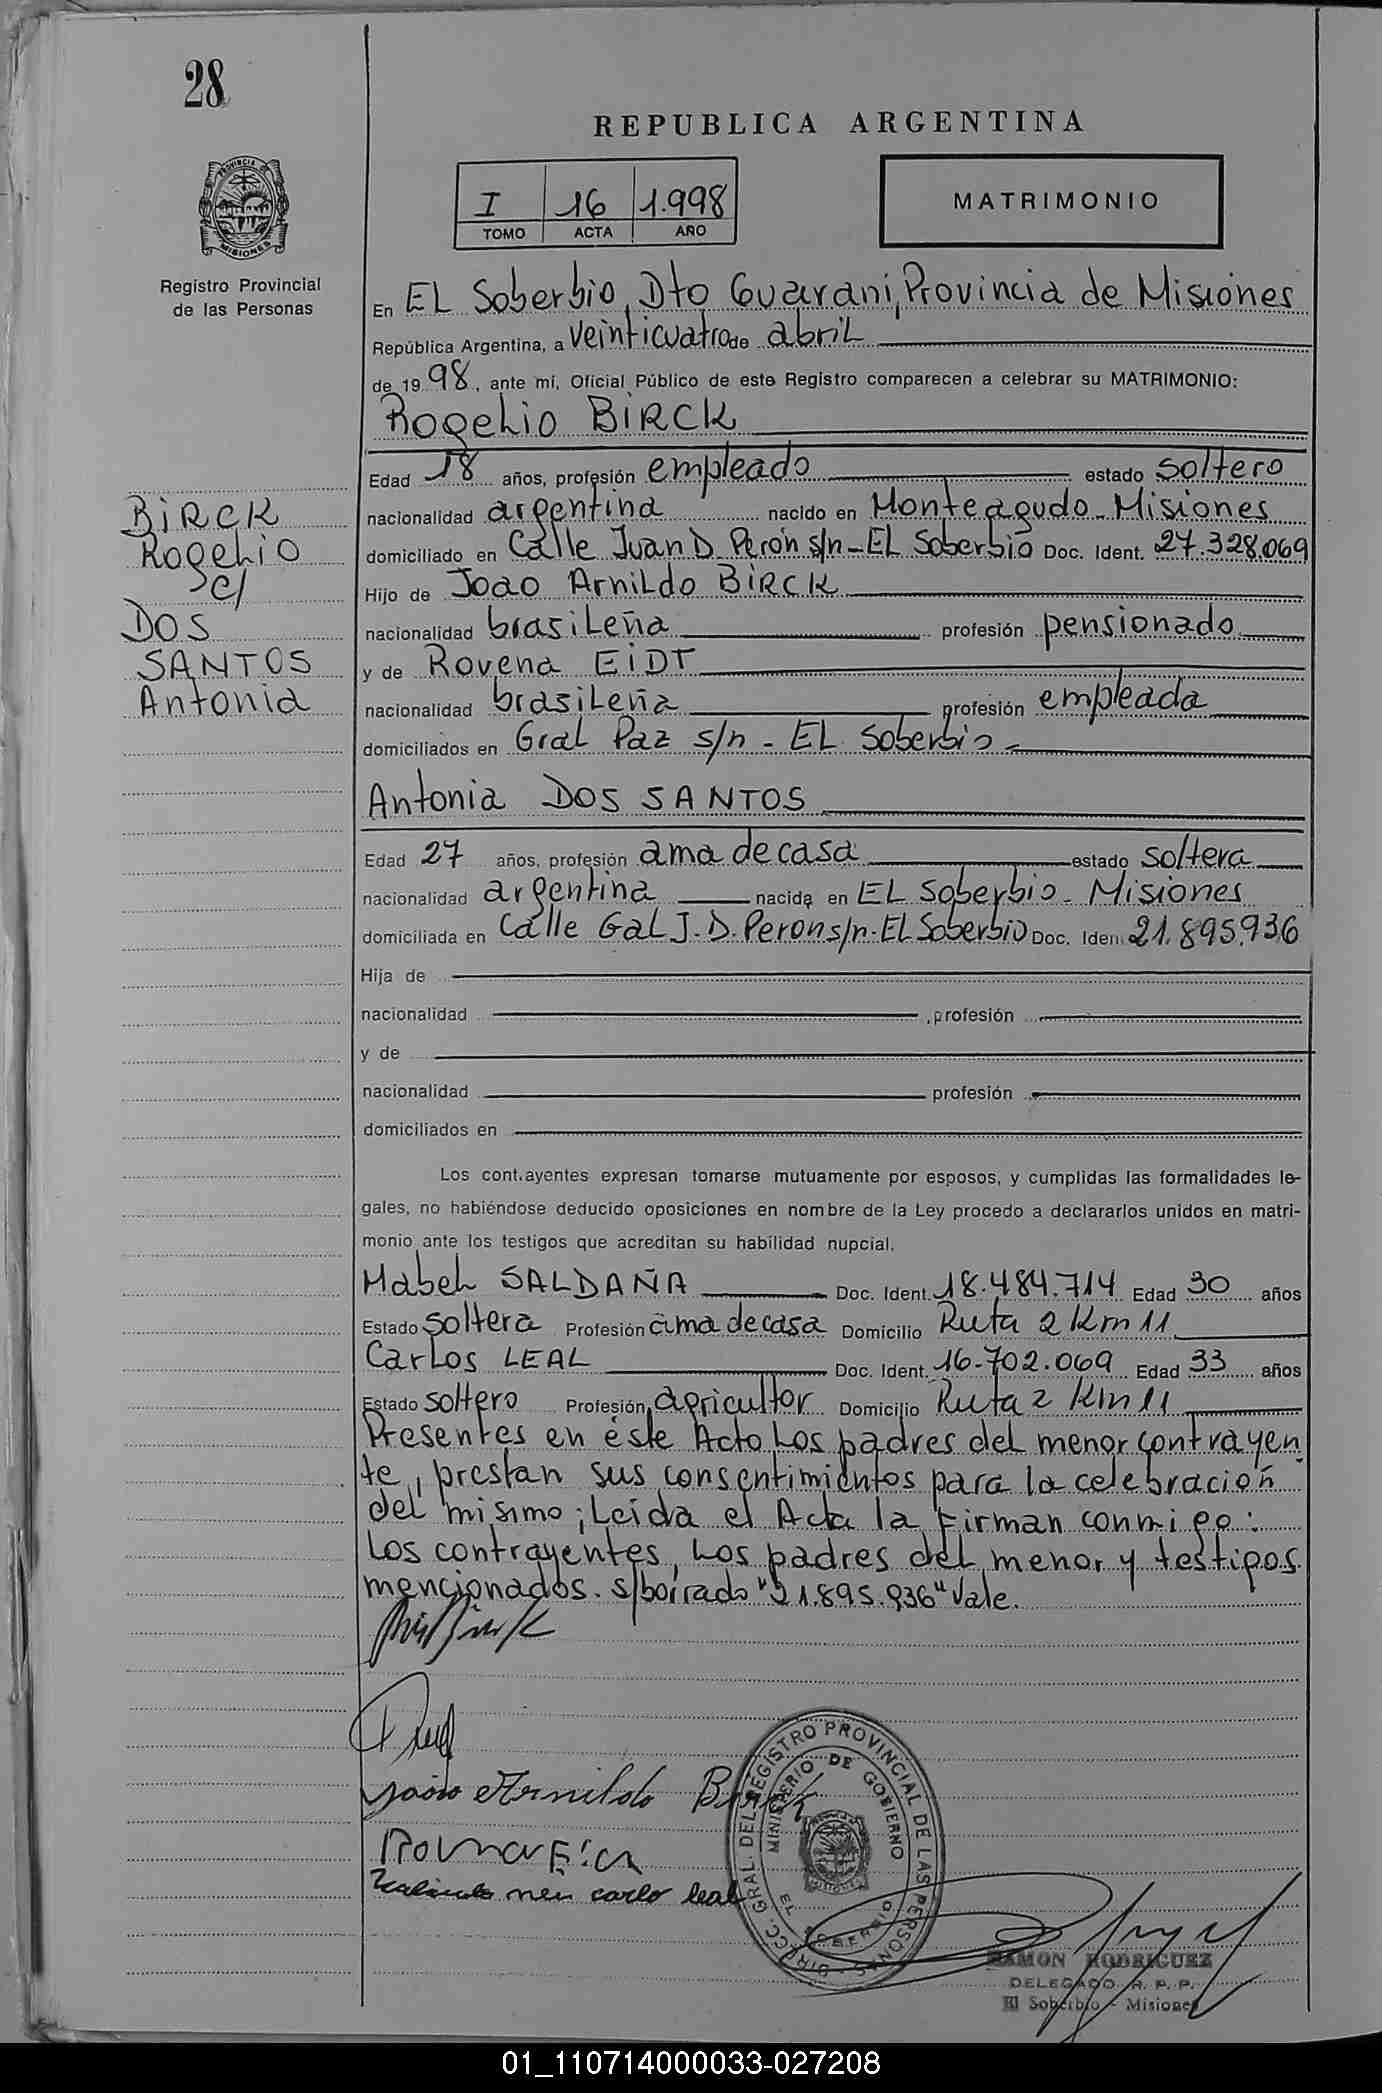 28
REPUBLICA ARGENTINA
I 16 1.998
TOMO ACTA AÑO
MATRIMONIO
PROVINCIA DE
MISIONES
Registro Provincial
de las Personas
En EL Soberbio, Dto Guarani, Provincia de Misiones
República Argentina, a veinticuatro de abril
de 19 98, ante mí, Oficial Público de este Registro comparecen a celebrar su MATRIMONIO:
Rogelio BIRCK
Edad 18 años, profesión empleado estado soltero
nacionalidad argentina nacido en Monteagudo - Misiones
domiciliado en Calle Juan D. Perón s/n - EL Soberbio Doc. Ident. 27.328.069
Hijo de Joao Arnildo BIRCK
nacionalidad brasileña profesión pensionado
y de Rovena EIDT
nacionalidad brasileña profesión empleada
domiciliados en Gral Paz s/n - EL Soberbio -
BIRCK
Rogelio
c/
DOS
SANTOS
Antonia
Antonia DOS SANTOS
Edad 27 años, profesión ama de casa estado soltera
nacionalidad argentina nacida en EL Soberbio - Misiones
domiciliada en Calle Gal J. D. Peron s/n - EL Soberbio Doc. Iden. 21.895.936
Hija de
nacionalidad profesión
y de
nacionalidad profesión
domiciliados en
Los cont.ayentes expresan tomarse mutuamente por esposos, y cumplidas las formalidades le-
gales, no habiéndose deducido oposiciones en nombre de la Ley procedo a declararlos unidos en matri-
monio ante los testigos que acreditan su habilidad nupcial.
Mabel SALDAÑA Doc. Ident. 18.484.714 Edad 30 años
Estado soltera Profesión ama de casa Domicilio Ruta 2 Km 11
Carlos LEAL Doc. Ident. 16.702.069 Edad 33 años
Estado soltero Profesión agricultor Domicilio Ruta 2 Km 11
Presentes en éste Acto Los padres del menor contrayen
te, prestan sus consentimientos para la celebración
del mismo; Leída el Acta la firman conmigo:
Los contrayentes, Los padres del menor y testigos
mencionados. s/borrado "21.895.936" Vale.
João Arnildo Birck
carlo leal
DIRECC. GRAL. DEL REGISTRO PROVINCIAL DE LAS PERSONAS
MINISTERIO DE GOBIERNO
EL SOBERBIO
MISIONES
RAMON RODRIGUEZ
DELEGADO R. P. P.
El Soberbio - Misiones
01_110714000033-027208